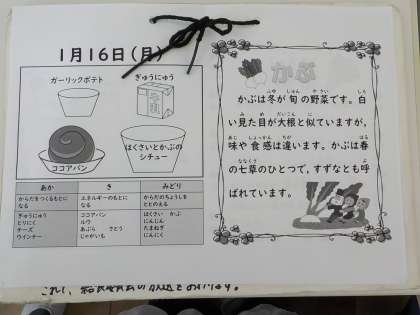 1月16日(月)
ガーリックポテト
ぎゅうにゅう
ココアパン
はくさいとかぶの
シチュー
あか き みどり
からだをつくるもとに
なる
エネルギーのもとに
なる
からだのちょうしを
ととのえる
ぎゅうにゅう
とりにく
チーズ
ウインナー
ココアパン
ルウ
あぶら さとう
じゃがいも
はくさい かぶ
にんじん
たまねぎ
にんにく
かぶ
かぶは冬が旬の野菜です。白
い見た目が大根と似ていますが、
味や食感は違います。かぶは春
の七草のひとつで、すずなとも呼
ばれています。